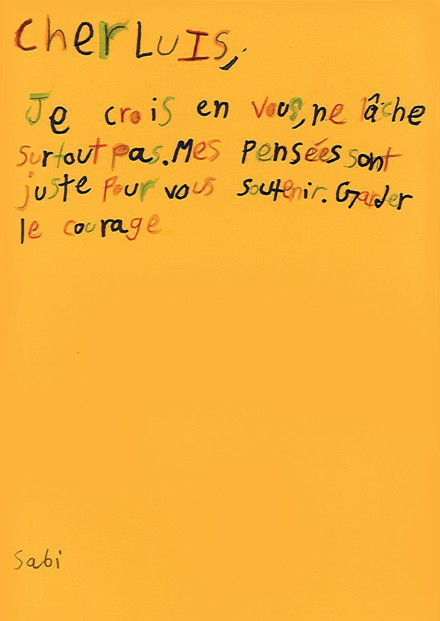 Cher Luis,
Je crois en vous, ne lâche
surtout pas. Mes pensées sont
juste pour vous soutenir. Garder
le courage
Sabi